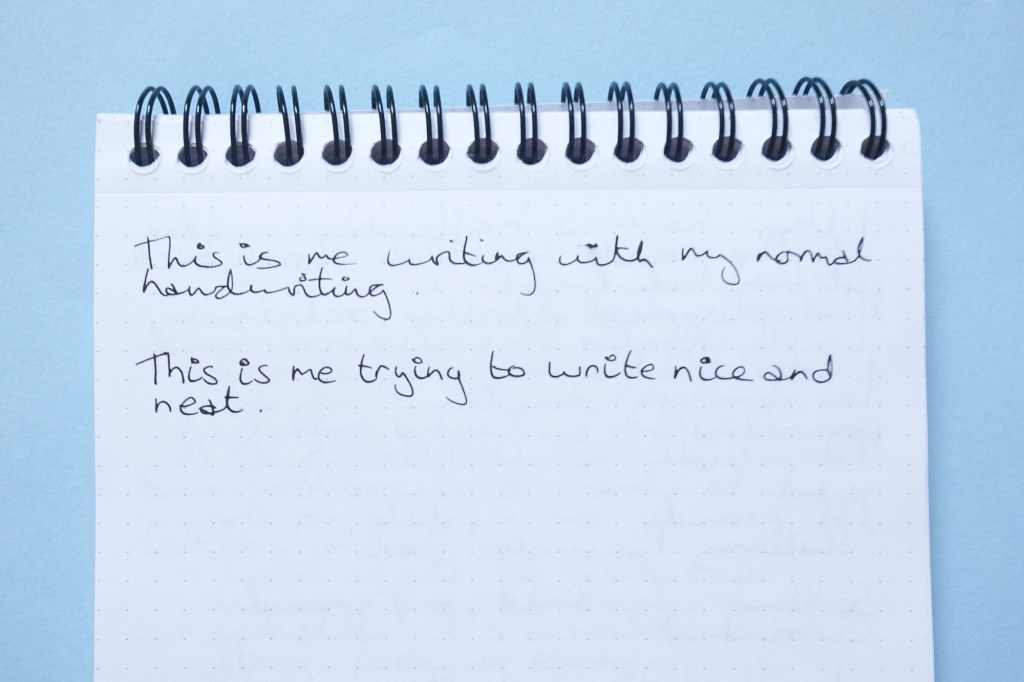 This is me writing with my normal
handwriting.
This is me trying to write nice and
neat.